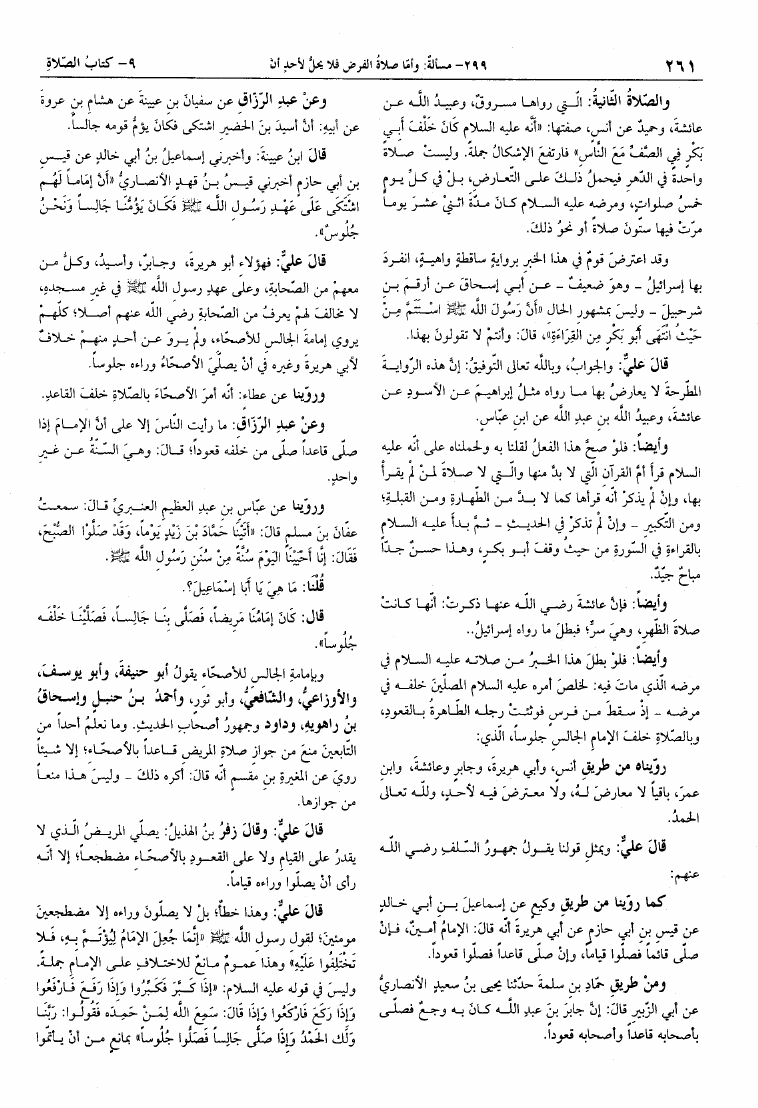 ٢٦١
٢٩٩- مسألةٌ: وأمّا صلاةُ الفرض فلا يحلُّ لأحدٍ أنْ
٩- كتابُ الصّلاةِ
والصّلاةُ الثّانيةُ: الّتي رواها مسروقٌ، وعبيدُ اللَّه عن
عائشةَ، وحميدٌ عن أنسٍ، صفتها: «أنّه عليه السلام كَانَ خَلْفَ أَبِي
بَكْرٍ فِي الصَّفِّ مَعَ النَّاسِ» فارتفعَ الإشكالُ جملةً. وليستْ صلاةً
واحدةً في الدّهرِ فيحملُ ذلكَ على التّعارضِ، بلْ في كلِّ يومٍ
خمسُ صلواتٍ، ومرضه عليه السلام كانَ مدّةَ اثنيْ عشرَ يوماً
مرّتْ فيها ستّونَ صلاةً أو نحوُ ذلكَ.
وقد اعترضَ قومٌ في هذا الخبرِ بروايةٍ ساقطةٍ واهيةٍ، انفردَ
بها إسرائيلُ - وهوَ ضعيفٌ - عن أبي إسحاقَ عن أرقمَ بنِ
شرحبيلَ - وليسَ بمشهورِ الحالِ «أَنَّ رَسُولَ اللَّه ﷺ اسْتَتَمَّ مِنْ
حَيْثُ انْتَهَى أَبُو بَكْرٍ مِن القِرَاءَةِ»، قالَ: وأنتمْ لا تقولونَ بهذا.
قالَ عليٌّ: والجوابُ، وباللَّه تعالى التّوفيقُ: إنَّ هذه الرّوايةَ
المطّرحةَ لا يعارضُ بها ما رواه مثلُ إبراهيمَ عن الأسودِ عن
عائشةَ، وعبيدُ اللَّه بنِ عبدِ اللَّه عن ابنِ عبّاسٍ.
وأيضاً: فلوْ صحَّ هذا الفعلُ لقلنا به ولحملناه على أنّه عليه
السلام قرأَ أمَّ القرآنِ الّتي لا بدَّ منها والّتي لا صلاةَ لمنْ لم يقرأْ
بها، وإنْ لم يذكرْ أنّه قرأها كما لا بدَّ من الطّهارةِ ومن القبلةِ؛
ومن التّكبيرِ - وإنْ لم تذكرْ في الحديثِ - ثمَّ بدأَ عليه السلام
بالقراءةِ في السّورةِ من حيثُ وقفَ أبو بكرٍ، وهذا حسنٌ جدّاً
مباحٌ جيّدٌ.
وأيضاً: فإنَّ عائشةَ رضي اللَّه عنها ذكرتْ: أنّها كانتْ
صلاةَ الظّهرِ، وهيَ سرٌّ؛ فبطلَ ما رواه إسرائيلُ..
وأيضاً: فلوْ بطلَ هذا الخبرُ من صلاته عليه السلام في
مرضه الّذي ماتَ فيه: لخلصَ أمره عليه السلام المصلّينَ خلفه في
مرضه - إذْ سقطَ من فرسٍ فوثئتْ رجله الطّاهرةُ بالقعودِ،
وبالصّلاةِ خلفَ الإمامِ الجالسِ جلوساً، الّذي:
روّيناه من طريقِ أنسٍ، وأبي هريرةَ، وجابرٍ وعائشةَ، وابنِ
عمرَ، باقياً لا معارضَ لهُ، ولا معترضَ فيه لأحدٍ، وللَّه تعالى
الحمدُ.
قالَ عليٌّ: وبمثلِ قولنا يقولُ جمهورُ السّلفِ رضي اللَّه
عنهم:
كما روّينا من طريقِ وكيعٍ عن إسماعيلَ بنِ أبي خالدٍ
عن قيسِ بنِ أبي حازمٍ عن أبي هريرةَ أنّه قالَ: الإمامُ أمينٌ، فإنْ
صلّى قائماً فصلّوا قياماً، وإنْ صلّى قاعداً فصلّوا قعوداً.
ومنْ طريقِ حمّادِ بنِ سلمةَ حدّثنا يحيى بنُ سعيدٍ الأنصاريُّ
عن أبي الزّبيرِ قالَ: إنَّ جابرَ بنَ عبدِ اللَّه كانَ به وجعٌ فصلّى
بأصحابه قاعداً وأصحابه قعوداً.
وعنْ عبدِ الرّزّاقِ عن سفيانَ بنِ عيينةَ عن هشامِ بنِ عروةَ
عن أبيهِ: أنَّ أسيدَ بنَ الحضيرِ اشتكى فكانَ يؤمُّ قومه جالساً.
قالَ ابنُ عيينةَ: وأخبرني إسماعيلُ بنُ أبي خالدٍ عن قيسِ
بنِ أبي حازمٍ أخبرني قيسُ بنُ قهدٍ الأنصاريُّ «أَنَّ إمَاماً لَهُم
اشْتَكَى عَلَى عَهْدِ رَسُولِ اللَّه ﷺ فَكَانَ يَؤُمُّنَا جَالِساً وَنَحْنُ
جُلُوسٌ».
قالَ عليٌّ: فهؤلاءِ أبو هريرةَ، وجابرٌ، وأسيدٌ، وكلُّ من
معهمْ من الصّحابةِ، وعلى عهدِ رسولِ اللَّه ﷺ في غيرِ مسجدهِ،
لا مخالفَ لهمْ يعرفُ من الصّحابةِ رضي اللَّه عنهم أصلاً؛ كلّهمْ
يروي إمامةَ الجالسِ للأصحّاءِ، ولم يروَ عن أحدٍ منهمْ خلافٌ
لأبي هريرةَ وغيره في أنْ يصلّيَ الأصحّاءُ وراءه جلوساً.
وروّينا عن عطاءٍ: أنّه أمرَ الأصحّاءَ بالصّلاةِ خلفَ القاعدِ.
وعنْ عبدِ الرّزّاقِ: ما رأيت النّاسَ إلا على أنَّ الإمامَ إذا
صلّى قاعداً صلّى من خلفه قعوداً؛ قالَ: وهيَ السّنّةُ عن غيرِ
واحدٍ.
وروّينا عن عبّاسِ بنِ عبدِ العظيمِ العنبريِّ قالَ: سمعتُ
عفّانَ بنَ مسلمٍ قالَ: «أَتَيْنَا حَمَّادَ بْنَ زَيْدٍ يَوْماً، وَقَدْ صَلَّوْا الصُّبْحَ،
فَقَالَ: إِنَّا أَحْيَيْنَا اليَوْمَ سُنَّةً مِنْ سُنَنِ رَسُولِ اللَّه ﷺ.
قُلْنَا: مَا هِيَ يَا أَبَا إِسْمَاعِيلَ؟.
قال: كَانَ إمَامُنَا مَرِيضاً، فَصَلَّى بِنَا جَالِساً، فَصَلَّيْنَا خَلْفَه
جُلُوساً».
وبإمامةِ الجالسِ للأصحّاءِ يقولُ أبو حنيفةَ، وأبو يوسفَ،
والأوزاعيُّ، والشّافعيُّ، وأبو ثورٍ، وأحمدُ بنُ حنبلٍ وإسحاقُ
بنُ راهويهِ، وداود وجمهورُ أصحابِ الحديثِ. وما نعلمُ أحداً من
التّابعينَ منعَ من جوازِ صلاةِ المريضِ قاعداً بالأصحّاءِ؛ إلا شيئاً
رويَ عن المغيرةِ بنِ مقسمٍ أنّه قالَ: أكره ذلكَ - وليسَ هذا منعاً
من جوازها.
قالَ عليٌّ: وقالَ زفرُ بنُ الهذيلِ: يصلّي المريضُ الّذي لا
يقدرُ على القيامِ ولا على القعودِ بالأصحّاءِ مضطجعاً؛ إلا أنّه
رأى أنْ يصلّوا وراءه قياماً.
قالَ عليٌّ: وهذا خطأٌ؛ بلْ لا يصلّونَ وراءه إلا مضطجعينَ
مومئينَ؛ لقولِ رسولِ اللَّه ﷺ «إنَّمَا جُعِلَ الإِمَامُ لِيُؤْتَمَّ بِهِ، فَلا
تَخْتَلِفُوا عَلَيْهِ» وهذا عمومٌ مانعٌ للاختلافِ على الإمامِ جملةً.
وليسَ في قوله عليه السلام: «إذَا كَبَّرَ فَكَبِّرُوا وَإِذَا رَفَعَ فَارْفَعُوا
وَإِذَا رَكَعَ فَارْكَعُوا وَإِذَا قَالَ: سَمِعَ اللَّه لِمَنْ حَمِدَه فَقُولُوا: رَبَّنَا
وَلَك الحَمْدُ وَإِذَا صَلَّى جَالِساً فَصَلُّوا جُلُوساً» بمانعٍ من أنْ يأتمّوا